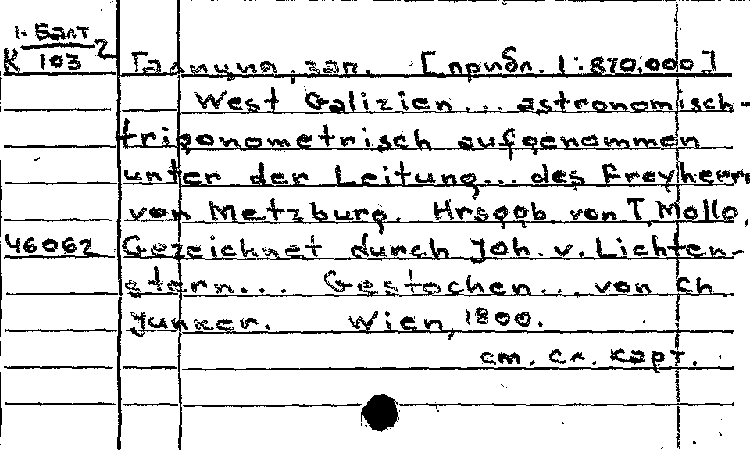 1. Балт
К 103 2
Галиция, зап. [прибл. 1:870,000]
West Galizien... astronomisch-
trigonometrisch aufgenommen
unter der Leitung... des Freyherrn
von Metzburg. Hrsggb. von T. Mollo,
46062 Gezeichnet durch Joh. v. Lichten-
stern... Gestochen... von Ch
Junker. Wien, 1800.
см. сл. карт.